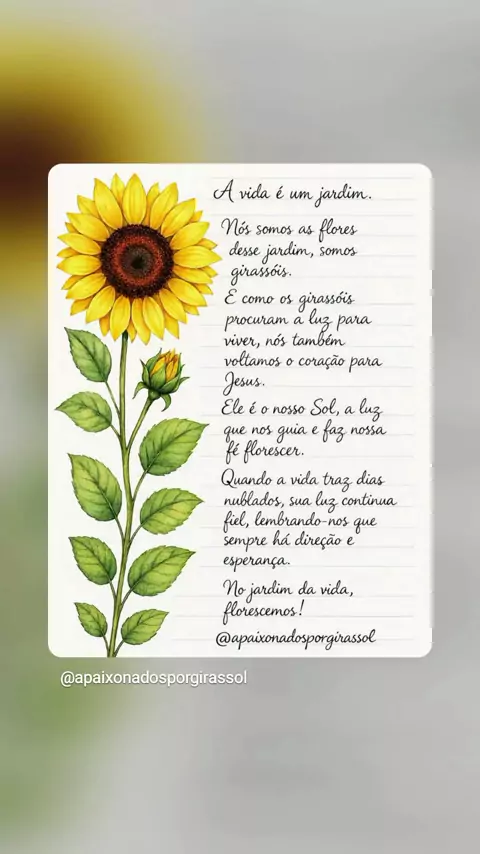 A vida é um jardim.
Nós somos as flores
desse jardim, somos
girassóis.
E como os girassóis
procuram a luz para
viver, nós também
voltamos o coração para
Jesus.
Ele é o nosso Sol, a luz
que nos guia e faz nossa
fé florescer.
Quando a vida traz dias
nublados, sua luz continua
fiel, lembrando-nos que
sempre há direção e
esperança.
No jardim da vida,
florescemos!
@apaixonadosporgirassol
@apaixonadosporgirassol